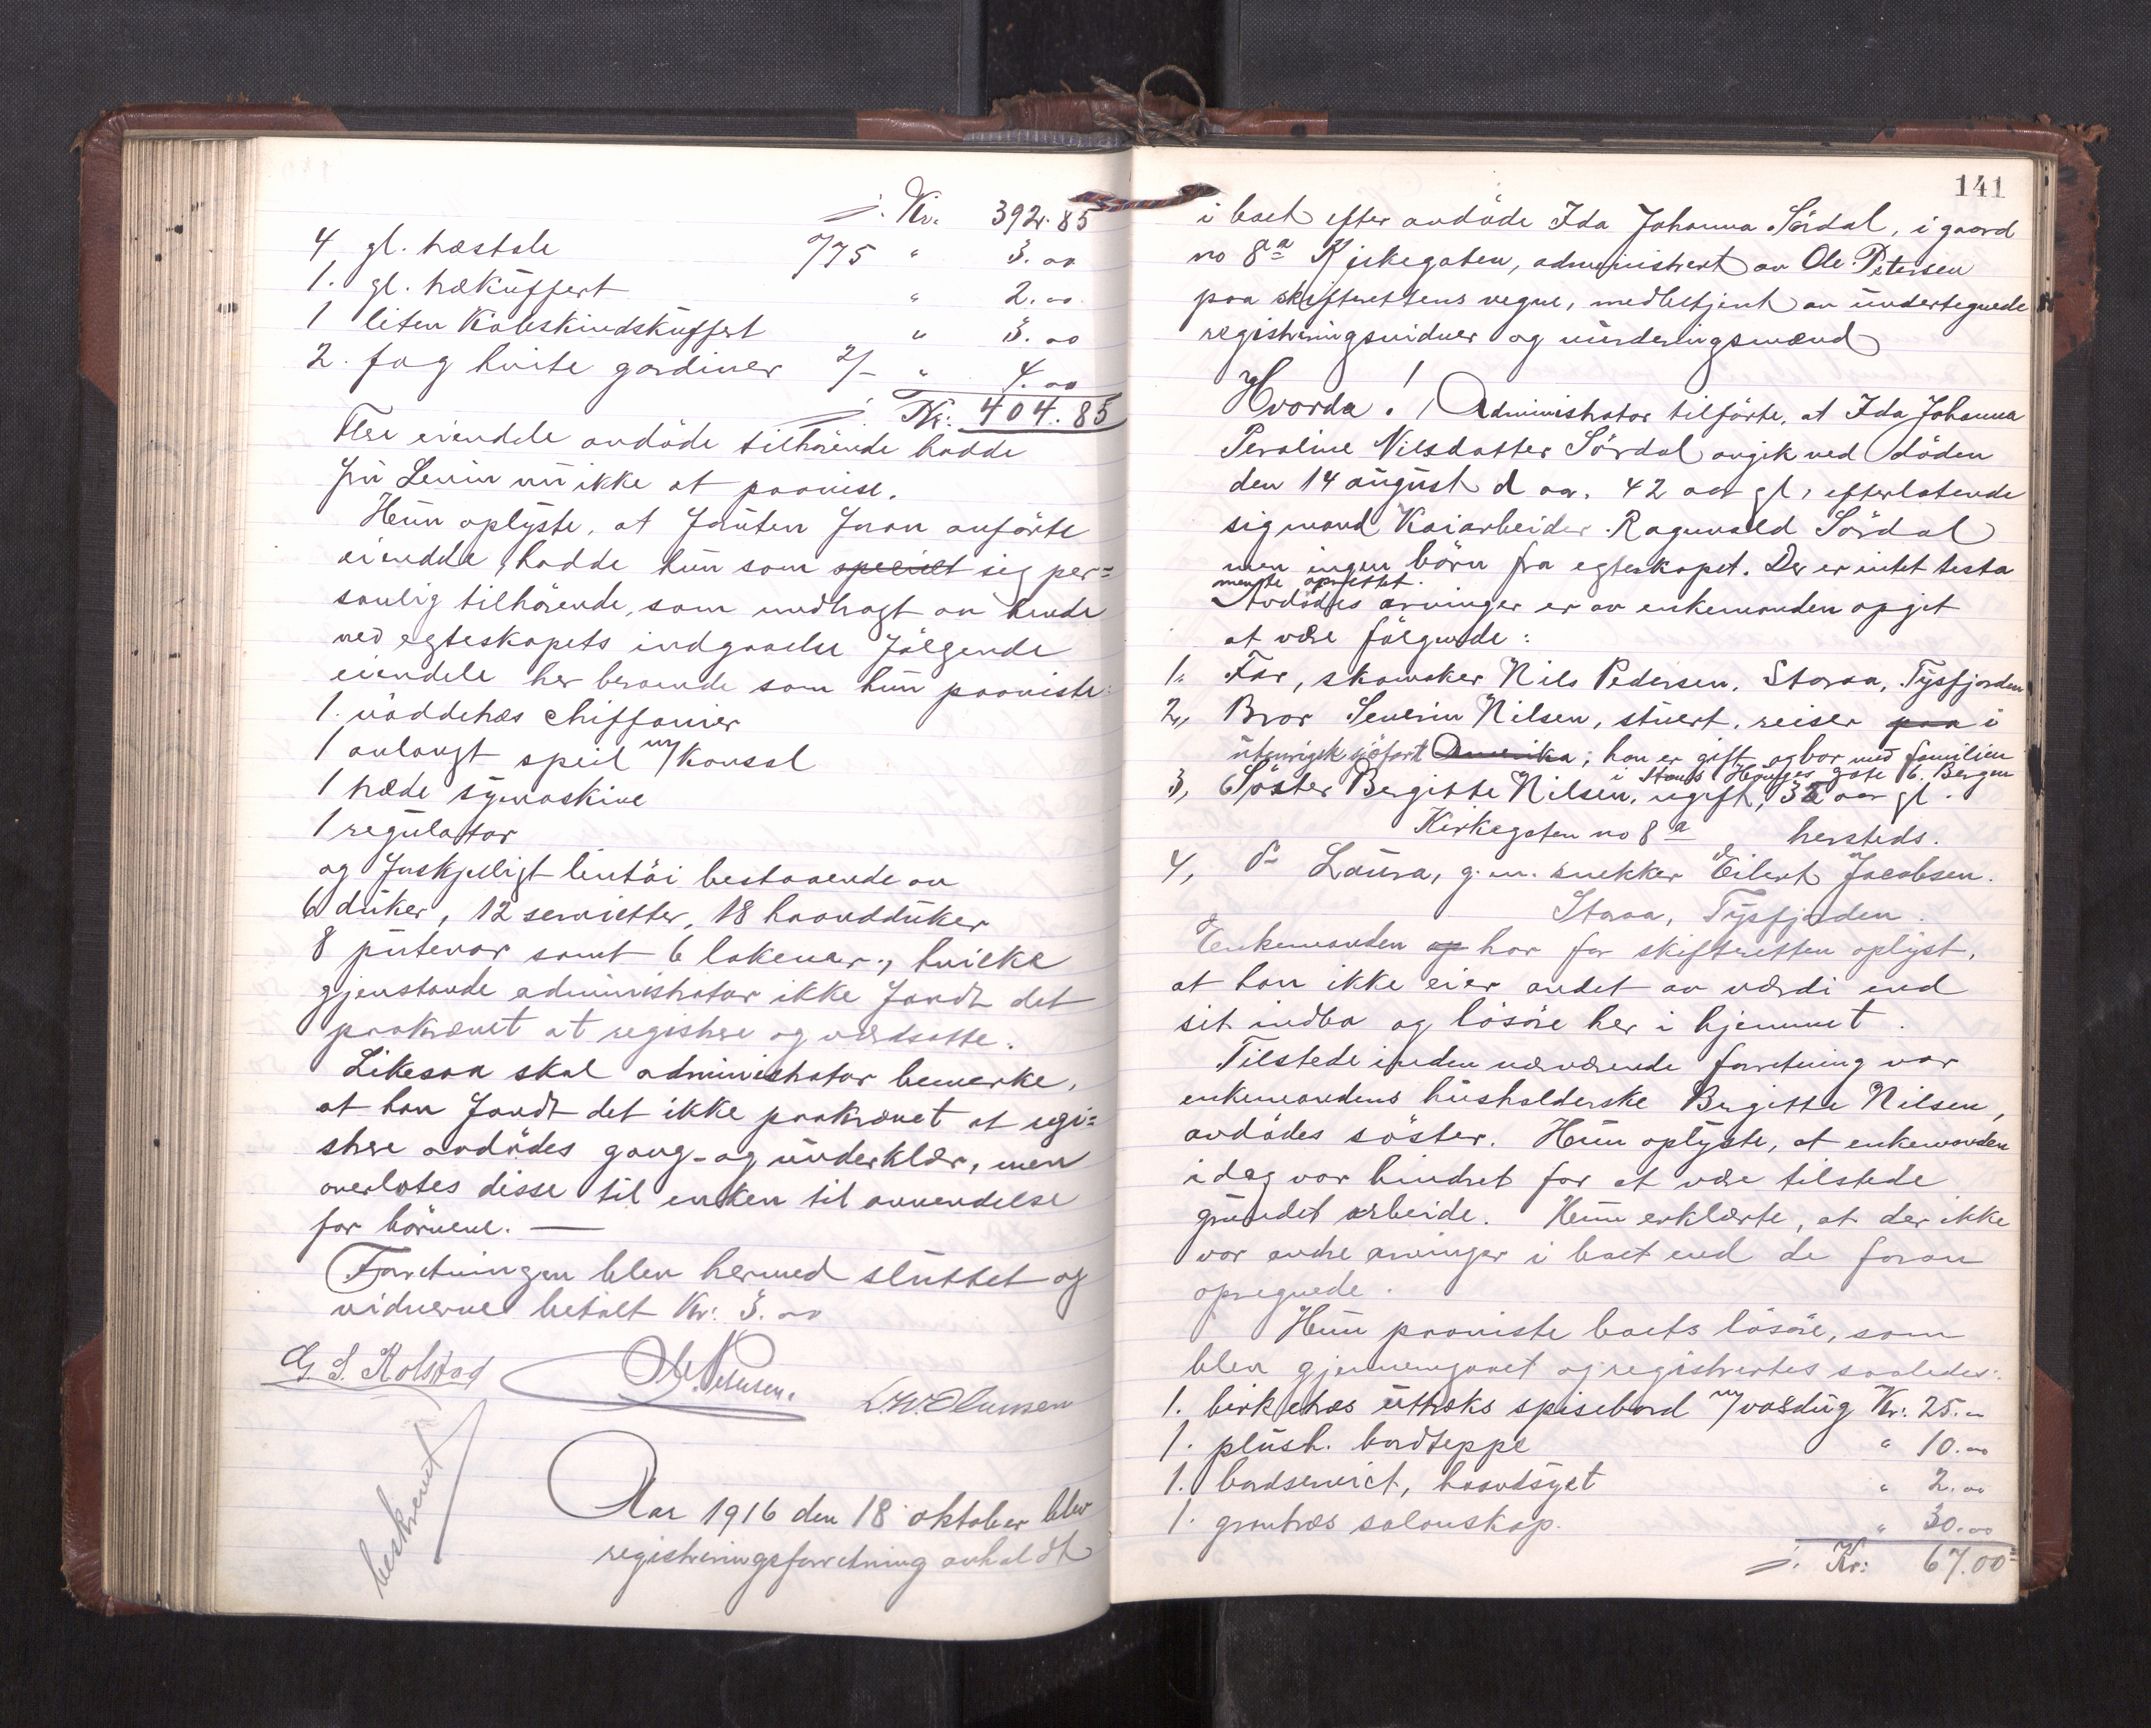 j. Kr. 392.85
4 gl. træstole a/75 " 3.00
1. gl. trækuffert " 2.00
1 liten Kobeskindskuffert " 3.00
2. fag hvite gardiner 2/- " 4.00
j. Kr: 404.85
Flere eiendele avdöde tilhörende hadde
fru Levin nu ikke at paavise.
Hun oplyste, at foruten foran anförte
eiendele, hadde hun som specielt sig per=
sonlig tilhörende, som medbragt av hende
ved egteskapets indgaaelse fölgende
eiendele her beroende som hun paaviste:
1. nöddetræs chiffonier
1 avlangt speil m/ Konsol
1 træde symaskine
1 regulator
og forskjelligt lintöi bestaaende av
6 duker, 12 servietter, 18 haandduker
8 putevar samt 6 lakener, hvilke
gjenstande administrator ikke fandt det
paakrævet at registrere og værdsætte.
Likesaa skal administrator bemerke,
at han fandt det ikke paakrævet at regi=
strere avdödes gang- og underklær, men
overlotes disse til enken til anvendelse
for börnene. —
Forretningen blev hermed sluttet og
vidnerne betalt Kr: 3.00
G. S. Kolstad Ole Petersen.
beskrevet
Aar 1916 den 18 oktober blev
registreringsforretning avholdt
141
i boet efter avdöde Ida Johanna Sördal, i gaard
no 8a Kirkegaten, administrert av Ole Petersen
paa skifterettens vegne, medbetjent av undertegnede
registreringsvidner og vurderingsmænd
Hvorda! Administrator tilförte, at Ida Johanna
Peroline Nilsdatter Sördal avgik ved döden
den 14 august d aa. 42 aar gl, efterlatende
sig mand Kaiarbeider Ragnvald Sördal
men ingen börn fra egteskapet. Der er intet testa
mente oprettet.
Avdödes arvinger er av enkemanden opgit
at være fölgende:
1. Far, skomaker Nils Pedersen, Storaa, Tysfjorden
2,, Bror Severin Nilsen, stuert, reiser paa i
utenrigsk sjöfart Amerika; han er gift og bor med familien
i Hauges gate 6. Bergen
3, Söster Bergitte Nilsen, ugift, 32 aar gl.
Kirkegaten no 8a hersteds.
4, do Laura, g. m. snekker Eilert Jacobsen.
Storaa, Tysfjorden.
Enkemanden op har for skifteretten oplyst,
at han ikke eier andet av værdi end
sit indbo og lösöre her i hjemmet.
Tilstede under nærværende forretning var
enkemandens husholderske Bergitte Nilsen,
avdödes söster. Hun oplyste, at enkemanden
idag var hindret for at være tilstede
grundet arbeide. Hun erklærte, at der ikke
var andre arvinger i boet end de foran
opregnede.
Hun paaviste boets lösöre, som
blev gjennemgaaet og registrertes saaledes:
1. birketræs uttræks spisebord m/ voksdug Kr: 25.00
1. plüsh. bordteppe " 10.00
1. bordserviet, haandsyet " 2.00
1. grantræs salonskap. " 30.00
j. Kr: 67.00